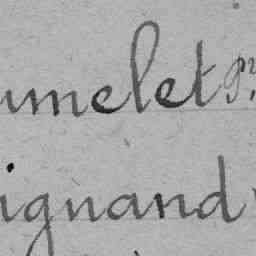 umelet Pr
ignand